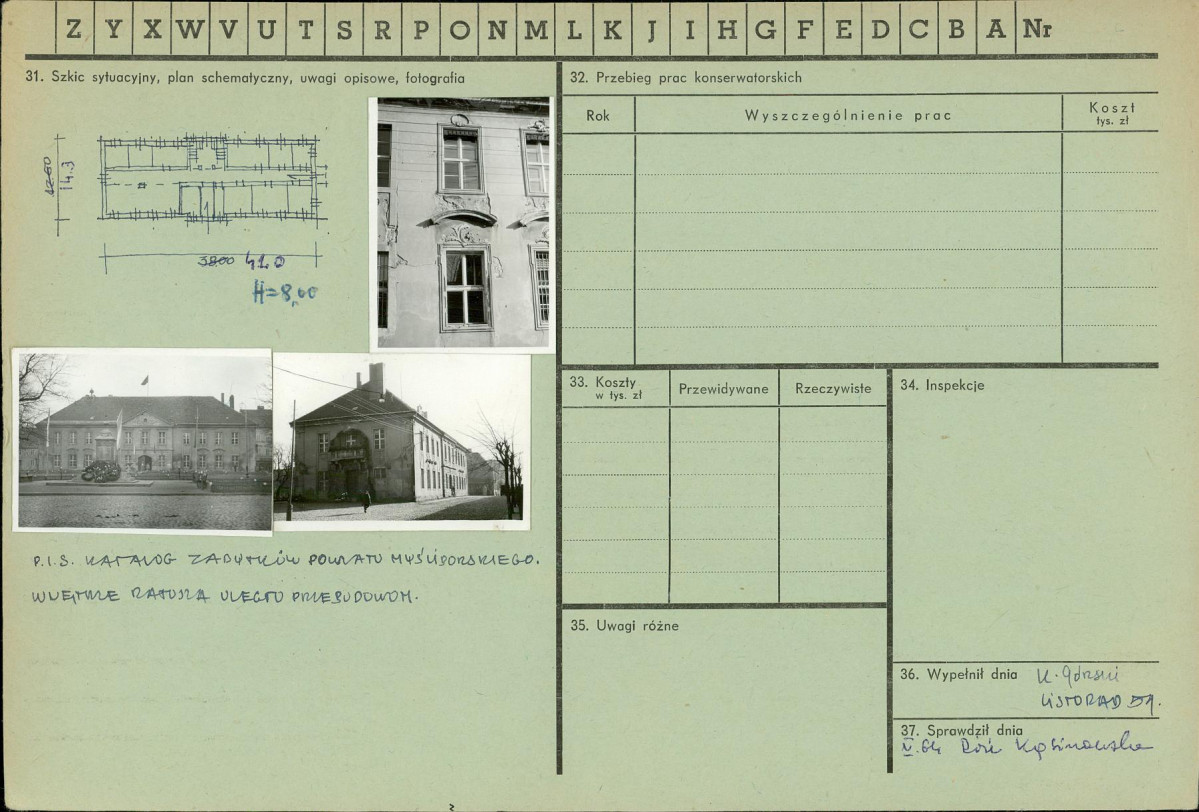 Z Y X W V U T S R P O N M L K J I H G F E D C B A Nr
31. Szkic sytuacyjny, plan schematyczny, uwagi opisowe, fotografia
1260
14.3
3800 41.0
H=8,00
P.I.S. KATALOG ZABYTKÓW POWIATU MYŚLIBORSKIEGO.
WNĘTRZE RATUSZA ULEGŁO PRZEBUDOWOM.
32. Przebieg prac konserwatorskich
Rok
Wyszczególnienie prac
Koszt
tys. zł
33. Koszty
w tys. zł
Przewidywane
Rzeczywiste
34. Inspekcje
35. Uwagi różne
36. Wypełnił dnia K. Górski
LISTOPAD 59.
37. Sprawdził dnia
V.64 Kąsinowska